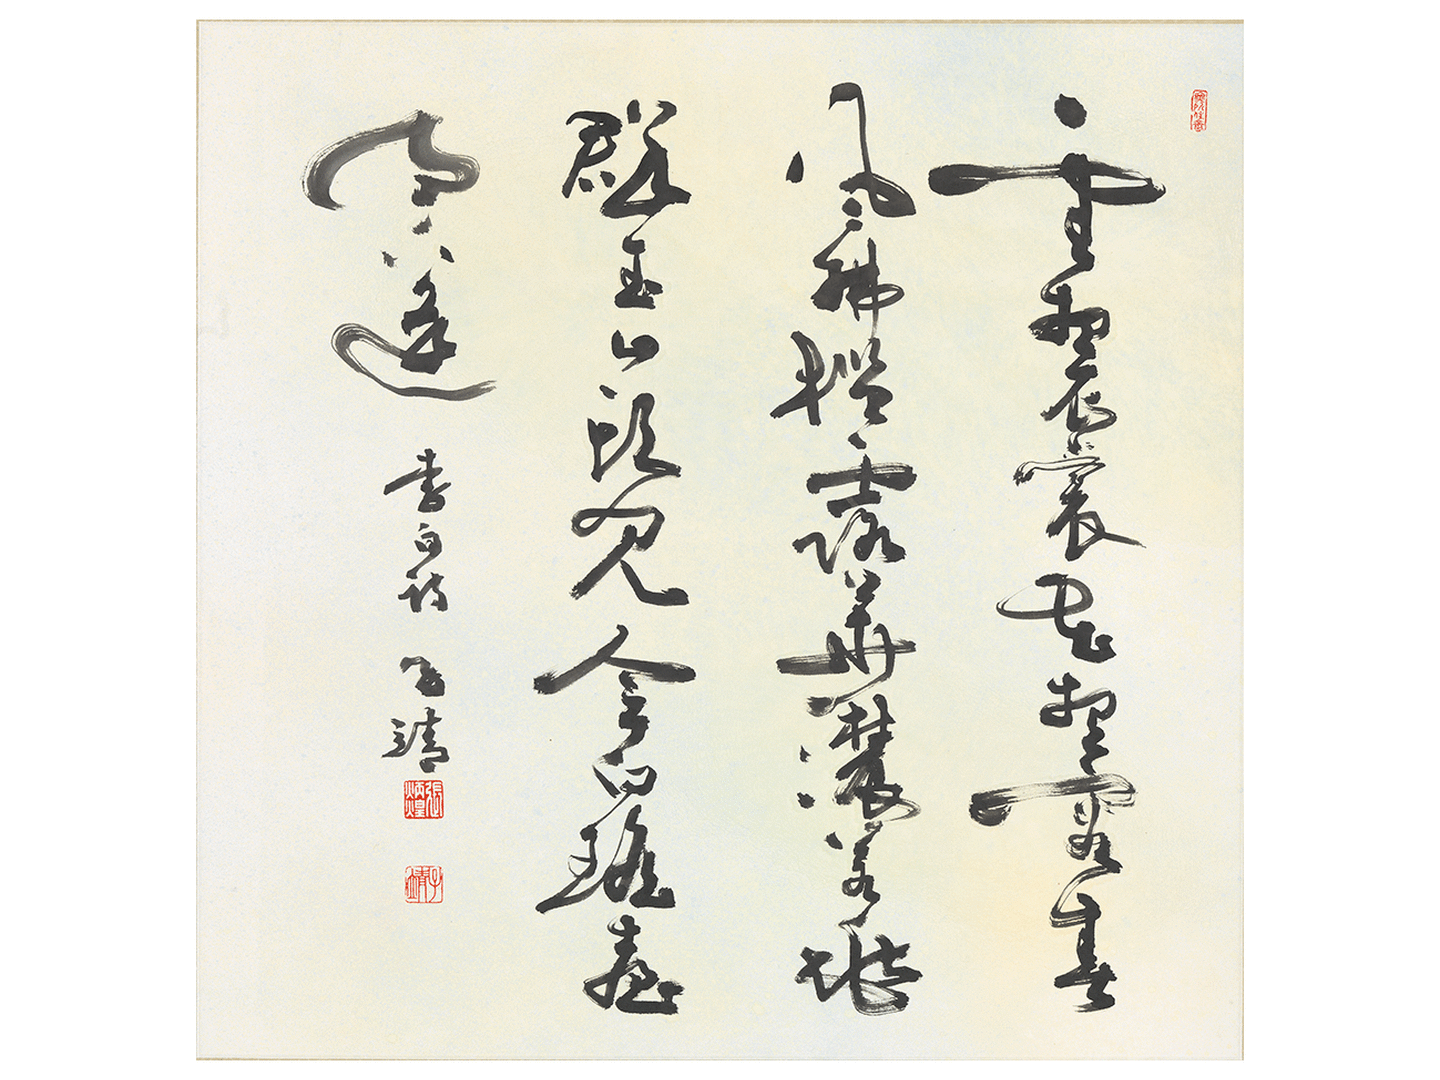 雲想衣裳花想容春
風拂檻露華濃若非
群玉山頭見會向瑤臺
月下逢 李白詩 子靖
張炳煌
子靖